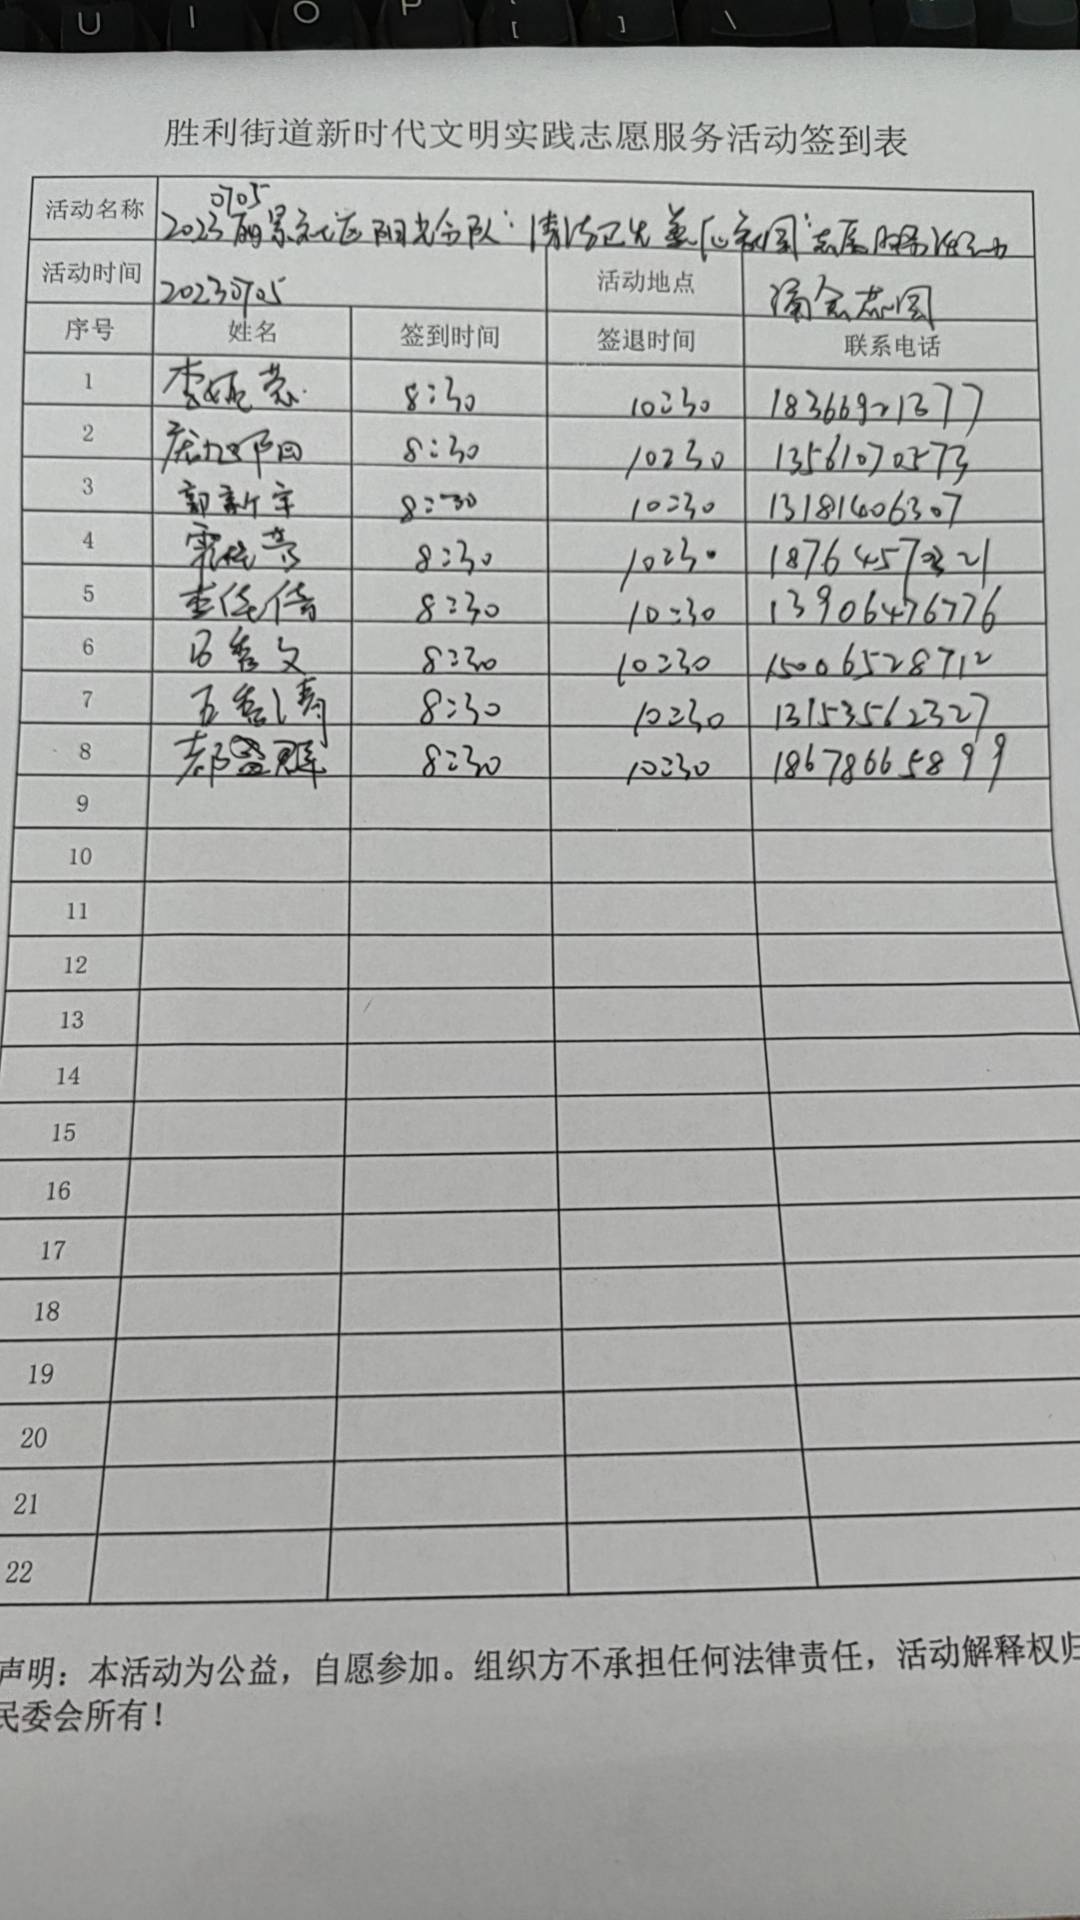 U I O P [ ] \
胜利街道新时代文明实践志愿服务活动签到表
0705
活动名称 2023丽景社区阳光分队:清洁卫生 家园"志愿服务活动
活动时间 20230705 活动地点
序号 姓名 签到时间 签退时间 联系电话
1 8:30 10:30 18366921377
2 8:30 10:30 13561070573
3 郭新宇 8:30 10:30 13181406307
4 8:30 10:30
5 8:30 10:30 13906476776
6 秀文 8:30 10:30 15006528712
7 8:30 10:30 13153562327
8 8:30 10:30 18678665899
9
10
11
12
13
14
15
16
17
18
19
20
21
22
声明：本活动为公益，自愿参加。组织方不承担任何法律责任，活动解释权归
民委会所有！